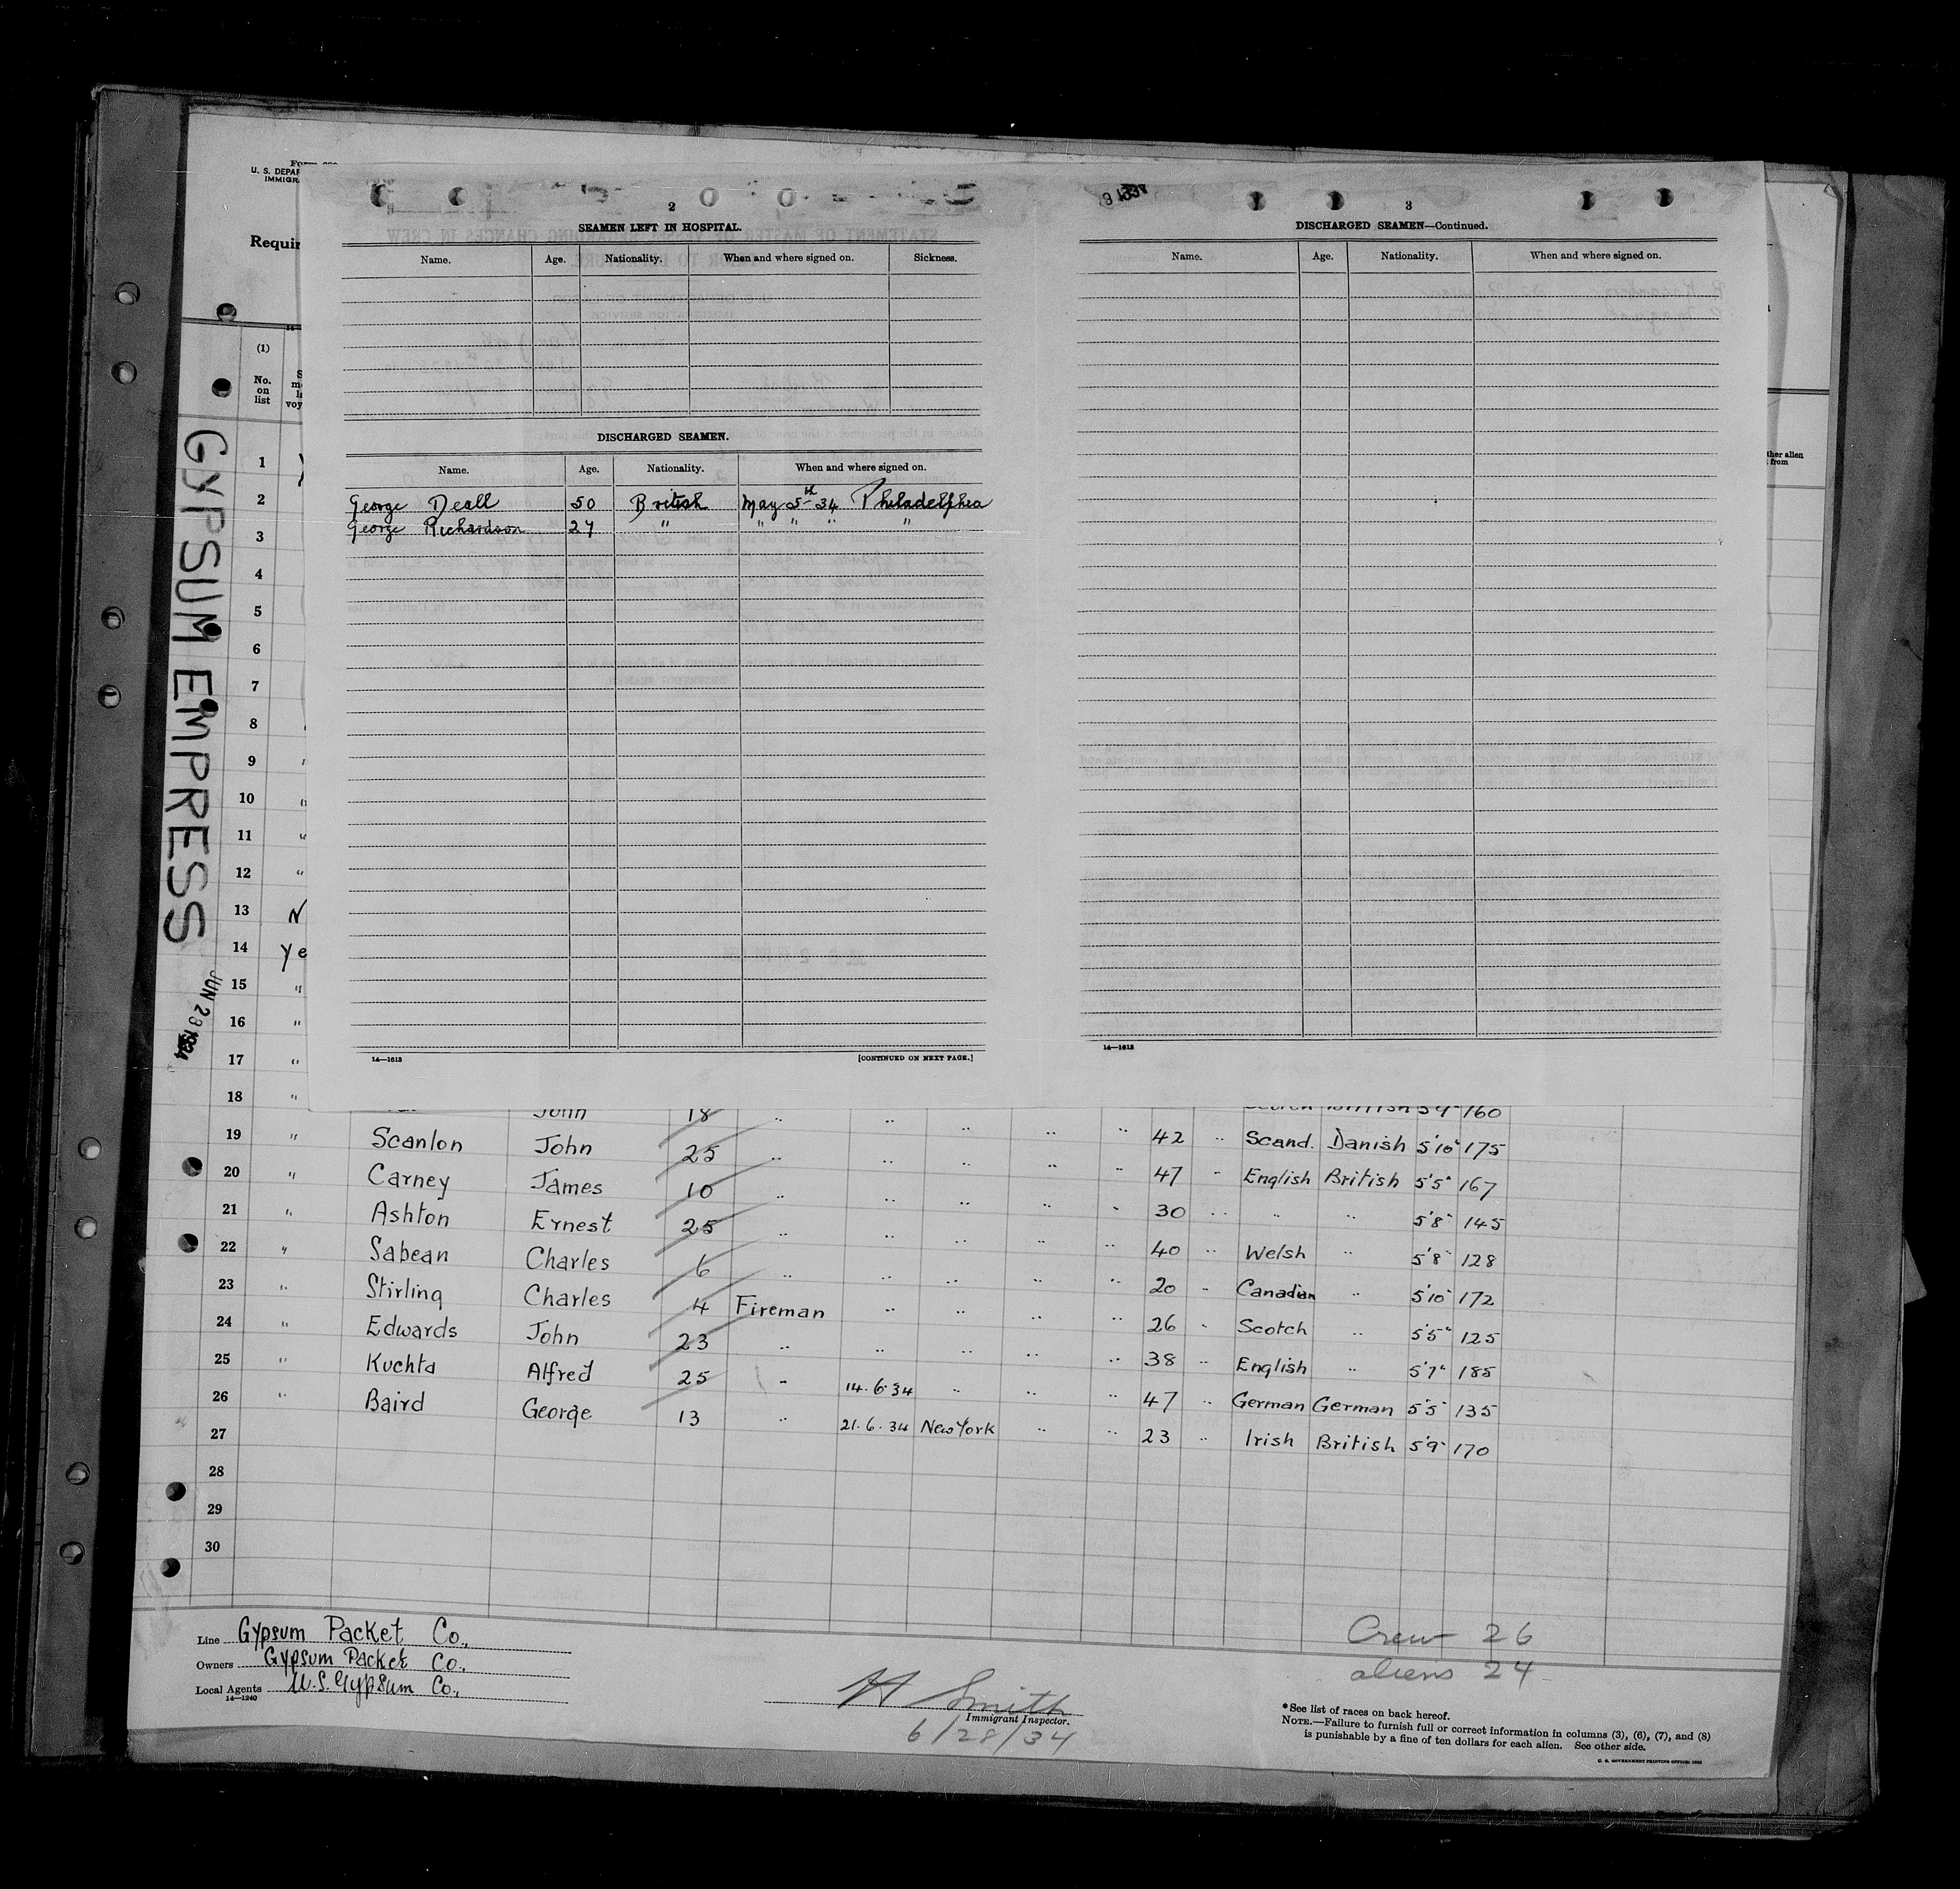 U. S. DEPAR
IMMIGR
Requir
(1)
No.
on
list
GYPSUM EMPRESS
2
SEAMEN LEFT IN HOSPITAL.
Name. Age. Nationality. When and where signed on. Sickness.
DISCHARGED SEAMEN.
Name. Age. Nationality. When and where signed on.
George Deall 50 British May 5th 34 Philadelphia
George Richardson 27 " " " " "
14—1613 [CONTINUED ON NEXT PAGE.]
3
DISCHARGED SEAMEN—Continued.
Name. Age. Nationality. When and where signed on.
14—1613
ther alien
from
1
2
3
4
5
6
7
8
9
10 "
11 "
12 "
13 N
14 Ye
15 "
16 "
17 "
18 "
John 18 " " " " " British 5'9" 160
19 " Scanlon John 25 " " " " " 42 " Scand. Danish 5'10" 175
20 " Carney James 10 " " " " " 47 " English British 5'5" 167
21 " Ashton Ernest 25 " " " " " 30 " " " 5'8" 145
22 " Sabean Charles 6 " " " " " 40 " Welsh " 5'8" 128
23 " Stirling Charles 4 Fireman " " " " 20 " Canadian " 5'10" 172
24 " Edwards John 23 " " " " " 26 " Scotch " 5'5" 125
25 " Kuchta Alfred 25 " 14.6.34 " " " 38 " English " 5'7" 185
26 " Baird George 13 " 21.6.34 New York " " 47 " German German 5'5" 135
27 23 " Irish British 5'9" 170
28
29
30
JUN 23 1934
Line Gypsum Packet Co.,
Owners Gypsum Packet Co.,
Local Agents U.S. Gypsum Co.,
14—1240
H Smith
Immigrant Inspector.
6/28/34
Crew 26
aliens 24
*See list of races on back hereof.
NOTE.—Failure to furnish full or correct information in columns (3), (6), (7), and (8)
is punishable by a fine of ten dollars for each alien. See other side.
U. S. GOVERNMENT PRINTING OFFICE: 1933